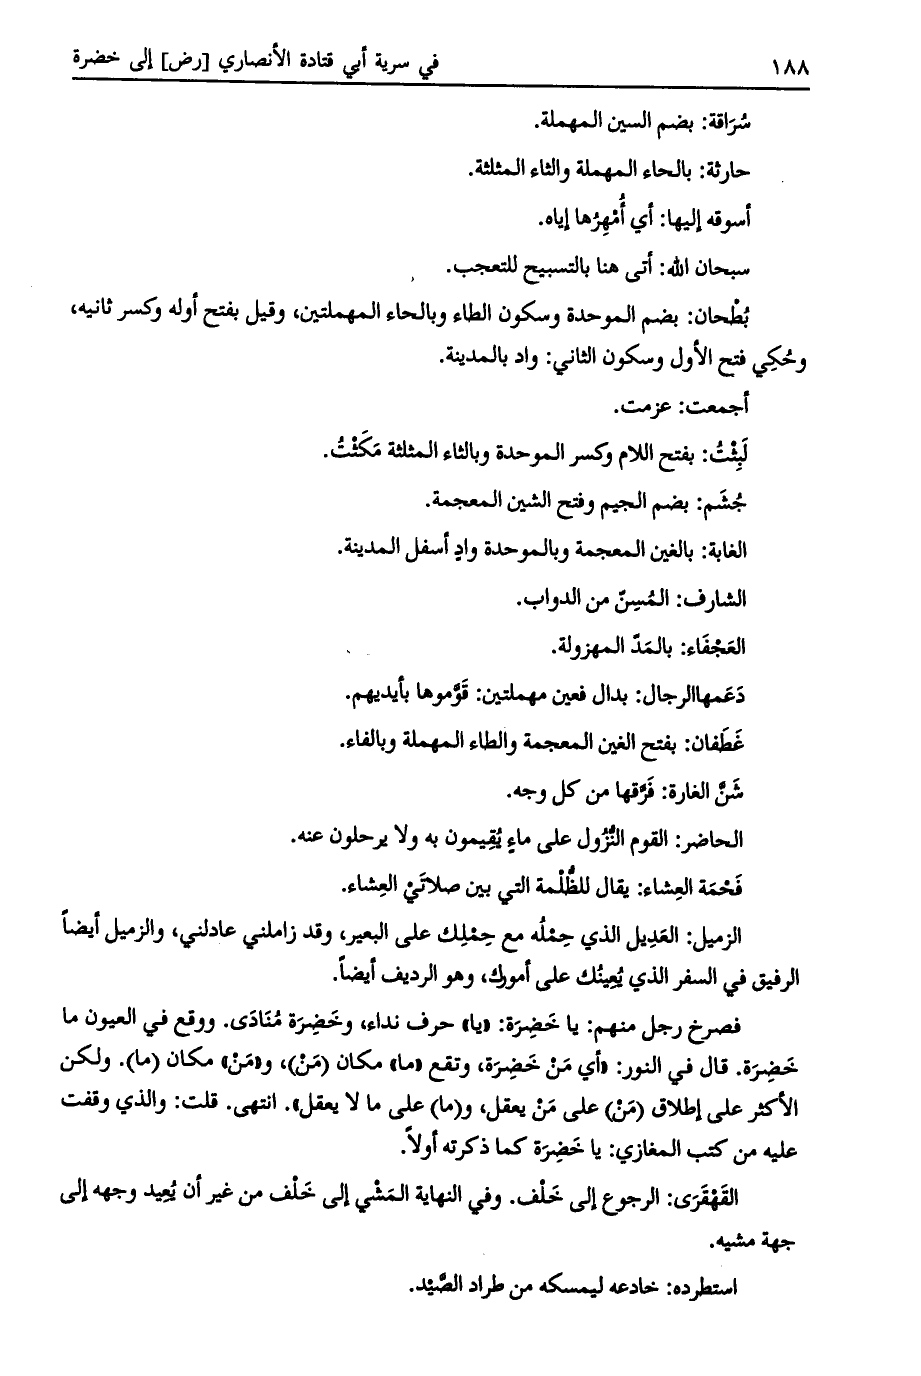 ١٨٨ في سرية أبي قتادة الأنصاري [رض] إلى خضرة
سُرَاقة: بضم السين المهملة.
حارثة: بالحاء المهملة والثاء المثلثة.
أسوقه إليها: أي أُمْهِرُها إياه.
سبحان الله: أتى هنا بالتسبيح للتعجب.
بُطْحان: بضم الموحدة وسكون الطاء وبالحاء المهملتين، وقيل بفتح أوله وكسر ثانيه،
وحُكِي فتح الأول وسكون الثاني: واد بالمدينة.
أجمعت: عزمت.
لَبِثْتُ: بفتح اللام وكسر الموحدة وبالثاء المثلثة مَكَثْتُ.
جُشَم: بضم الجيم وفتح الشين المعجمة.
الغابة: بالغين المعجمة وبالموحدة وادٍ أسفل المدينة.
الشارف: المُسِنّ من الدواب.
العَجْفَاء: بالمَدّ المهزولة.
دَعَمهاالرجال: بدال فعين مهملتين: قَوَّموها بأيديهم.
غَطَفان: بفتح الغين المعجمة والطاء المهملة وبالفاء.
شَنَّ الغارة: فَرَّقها من كل وجه.
الحاضر: القوم النُّزُول على ماءٍ يُقِيمون به ولا يرحلون عنه.
فَحْمَة العِشاء: يقال للظُّلْمة التي بين صلاتَيْ العِشاء.
الزميل: العَدِيل الذي حِمْلُه مع حِمْلِك على البعير، وقد زاملني عادلني، والزميل أيضاً
الرفيق في السفر الذي يُعِينُك على أمورك، وهو الرديف أيضاً.
فصرخ رجل منهم: يا خَضِرَة: «يا» حرف نداء، وخَضِرَة مُنَادَى. ووقع في العيون ما
خَضِرَة. قال في النور: «أي مَنْ خَضِرَة، وتقع «ما» مكان (مَنْ)، و«مَنْ» مكان (ما). ولكن
الأكثر على إطلاق (مَنْ) على مَنْ يعقل، و(ما) على ما لا يعقل». انتهى. قلت: والذي وقفت
عليه من كتب المغازي: يا خَضِرَة كما ذكرته أولاً.
القَهْقَرَى: الرجوع إلى خَلْف. وفي النهاية المَشْي إلى خَلْف من غير أن يُعِيد وجهه إلى
جهة مشيه.
استطرده: خادعه ليمسكه من طراد الصَّيْد.